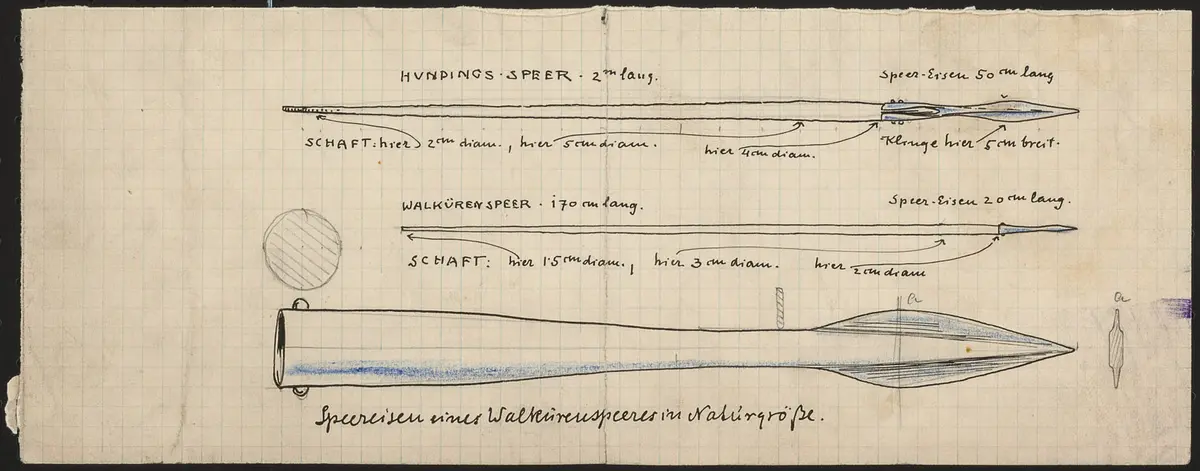 HUNDINGS · SPEER · 2m lang.
Speer-Eisen 50cm lang
SCHAFT: hier 2cm diam., hier 5cm diam.
hier 4cm diam.
Klinge hier 5cm breit.
WALKÜRENSPEER · 170 cm lang.
Speer-Eisen 20cm lang.
SCHAFT: hier 1·5cm diam., hier 3cm diam.
hier 2cm diam
a
a
Speereisen eines Walkürenspeeres in Natürgröße.